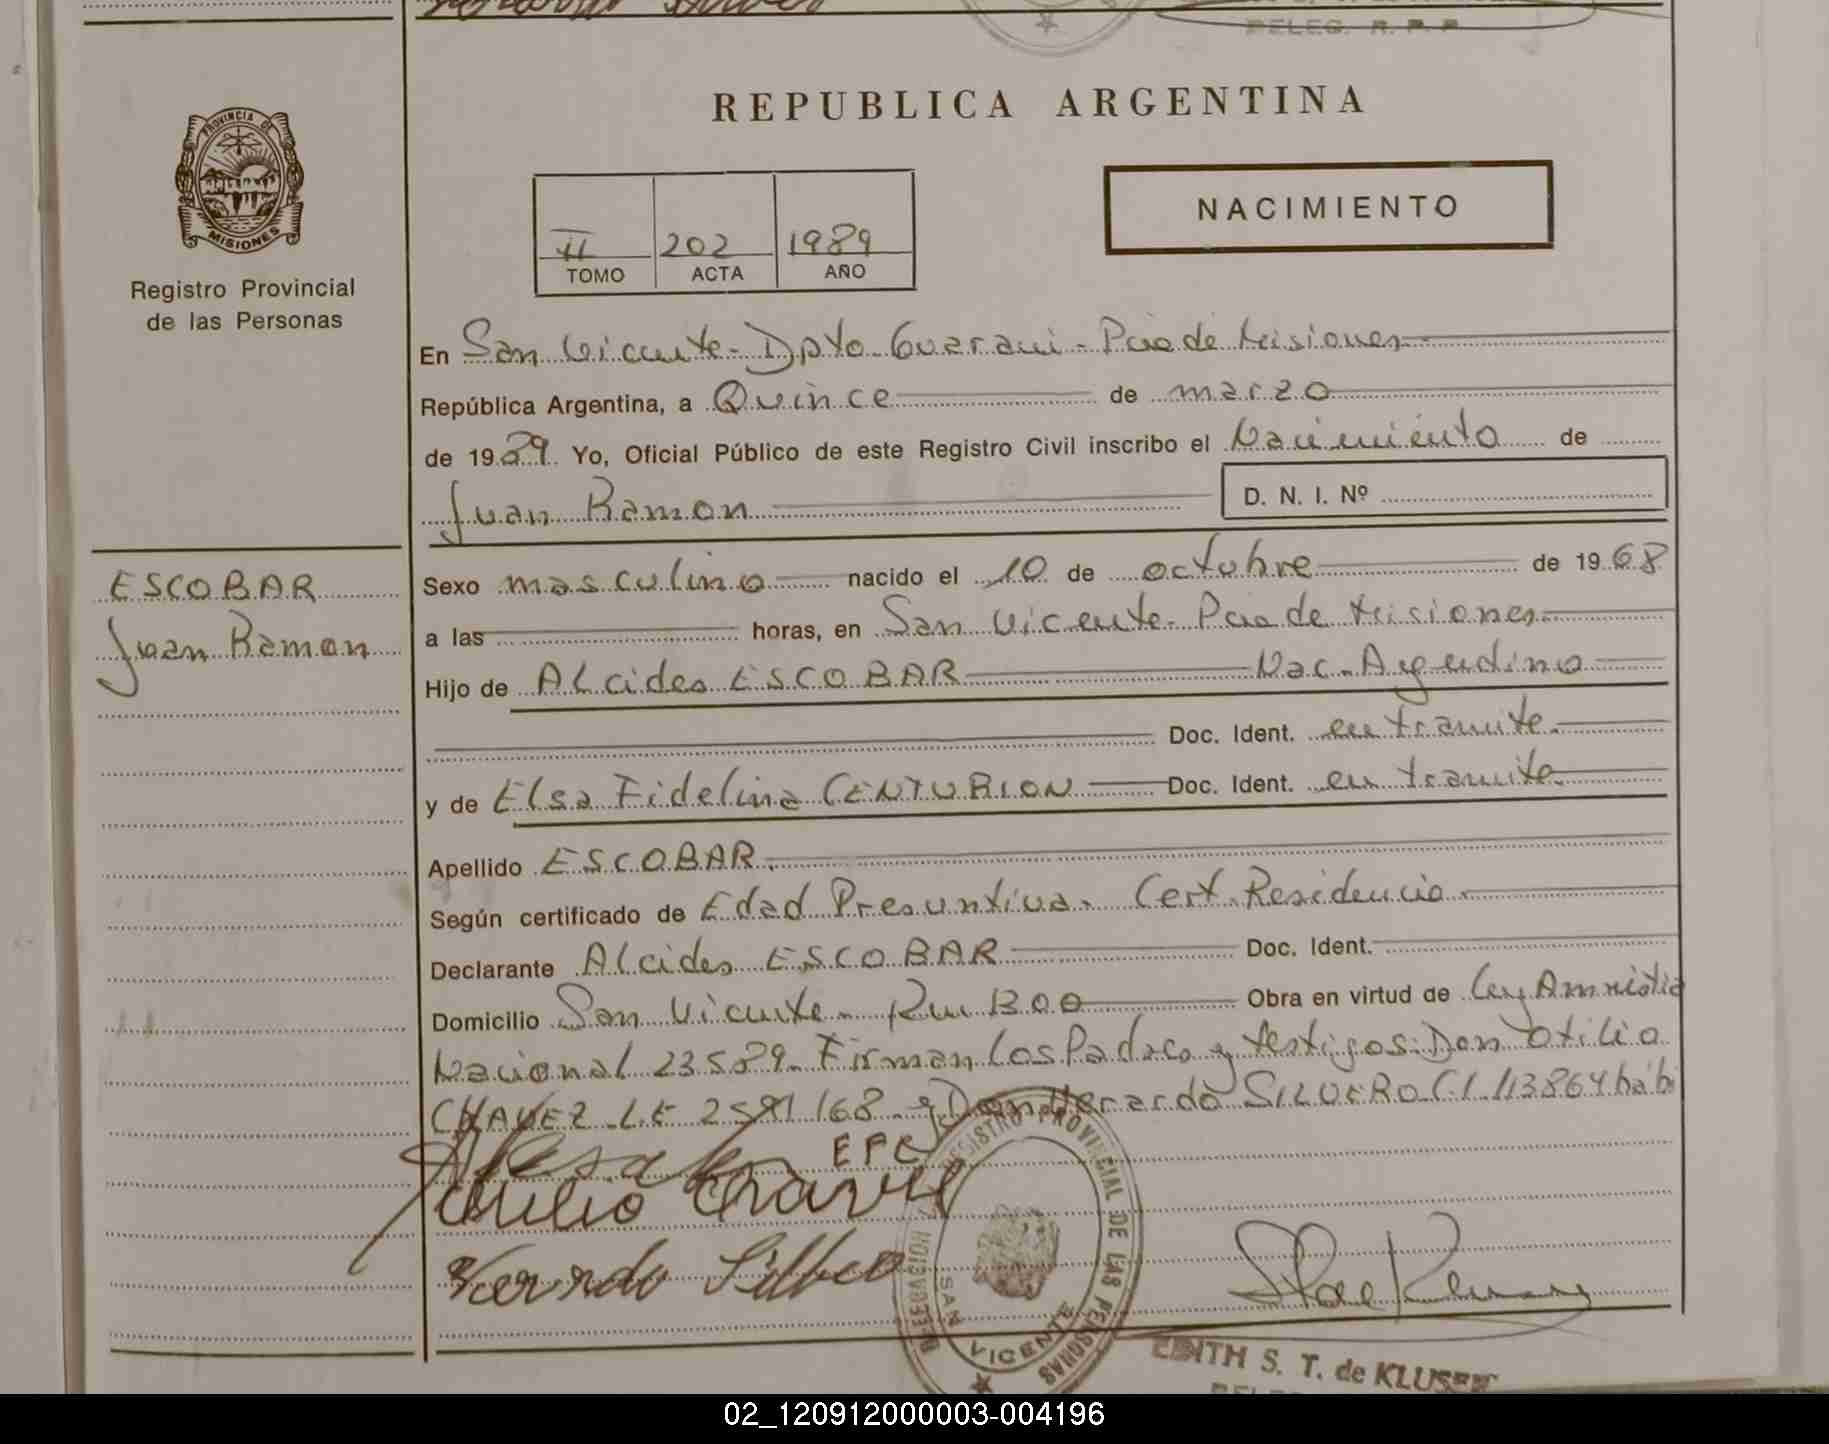 DELEG. R. P. P.
REPUBLICA ARGENTINA
PROVINCIA DE
MISIONES
Registro Provincial
de las Personas
II 202 1989
TOMO ACTA AÑO
NACIMIENTO
En San Vicente - Dpto Guarani - Pcia de Misiones
República Argentina, a Quince de marzo
de 1989 Yo, Oficial Público de este Registro Civil inscribo el Nacimiento de
Juan Ramon D. N. I. Nº
ESCOBAR
Juan Ramon
Sexo masculino nacido el 10 de octubre de 1968
a las horas, en San Vicente - Pcia de Misiones
Hijo de Alcides ESCOBAR Nac. Argentino
Doc. Ident. en tramite.
y de Elsa Fidelina CENTURION Doc. Ident. en tramite.
Apellido ESCOBAR.
Según certificado de Edad Presuntiva. Cert. Residencia.
Declarante Alcides ESCOBAR Doc. Ident.
Domicilio San Vicente - Obra en virtud de Ley Amnistia
Nacional 23.589. Firman los Padres y testigos: Don Otilio
CHAVEZ L.E 2591168 y Don SILVERO C.I. 113864
EPC
REGISTRO PROVINCIAL DE LAS PERSONAS
DELEGACION
SAN VICENTE
EDITH S. T. de KLUSEN
02_120912000003-004196